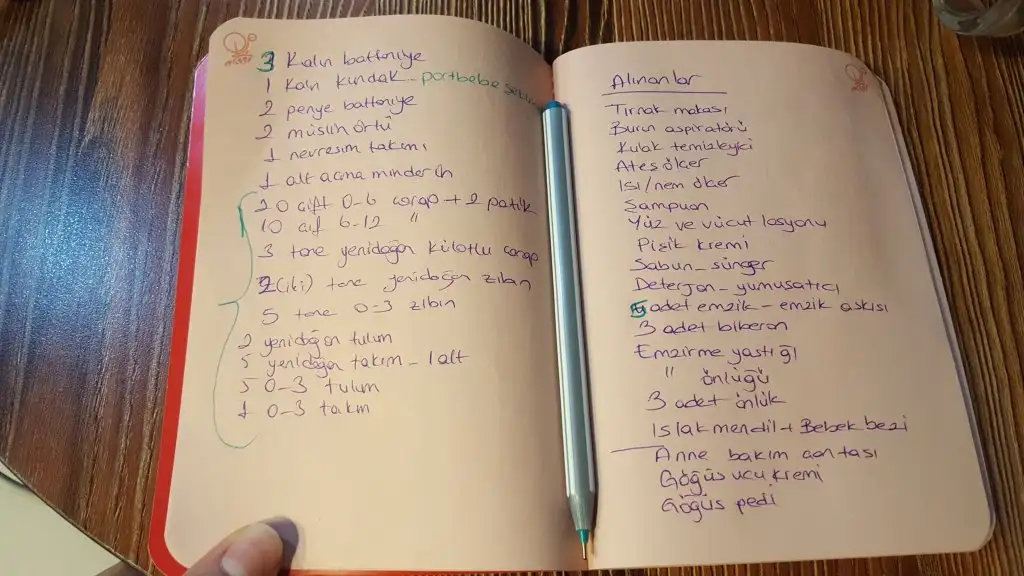 3 Kalın battaniye
1 Kalın kundak... portbebe
2 penye battaniye
2 müslin örtü
1 nevresim takımı
1 alt açma minderi
20 çift 0-6 çorap + 2 patik
10 çif 6-12 "
3 tane yenidoğan külotlu çorap
2 (iki) tane yenidoğan zıbın
5 tane 0-3 zıbın
2 yenidoğan tulum
5 yenidoğan takım - 1 alt
5 0-3 tulum
1 0-3 takım
Alınanlar
Tırnak makası
Burun aspiratörü
Kulak temizleyici
Ateş ölçer
Isı/nem ölçer
Şampuan
Yüz ve vücut losyonu
Pişik kremi
Sabun - sünger
Deterjan - yumuşatıcı
5 adet emzik - emzik askısı
3 adet biberon
Emzirme yastığı
" önlüğü
3 adet önlük
Islak mendil + Bebek bezi
Anne bakım çantası
Göğüs ucu kremi
Göğüs pedi